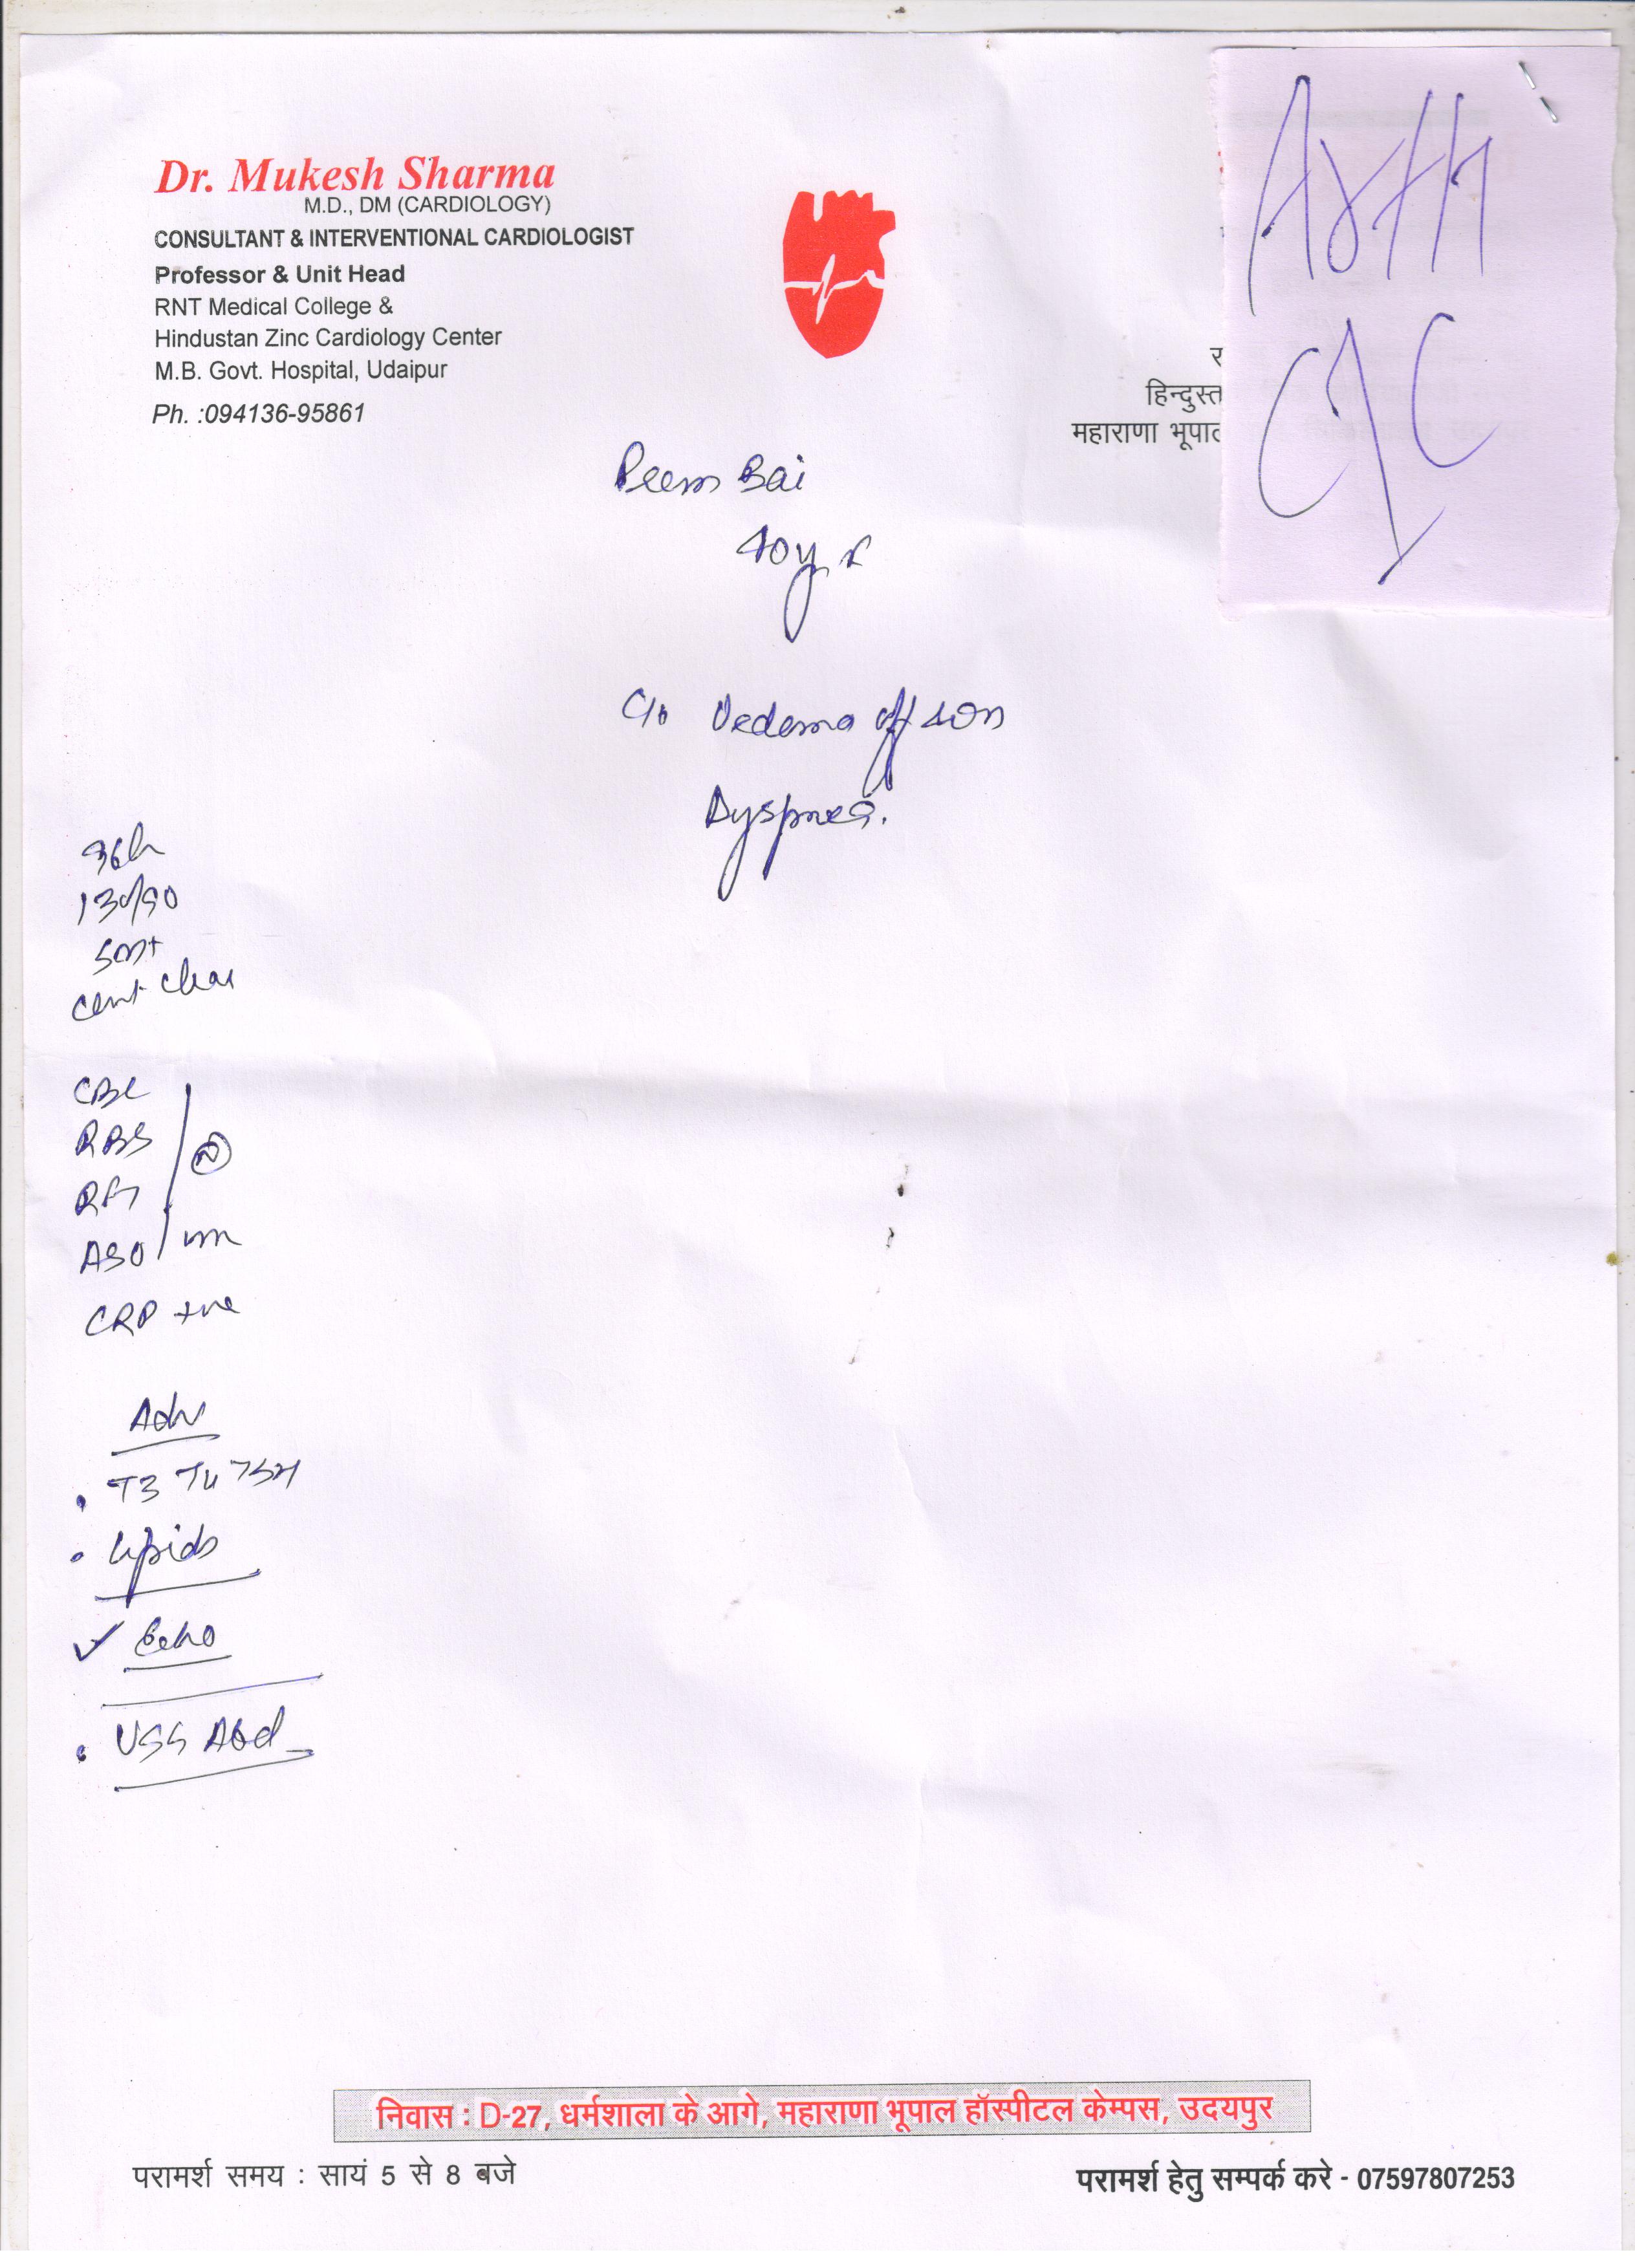 Dr. Mukesh Sharma
M.D., DM (CARDIOLOGY)
CONSULTANT & INTERVENTIONAL CARDIOLOGIST
Professor & Unit Head
RNT Medical College &
Hindustan Zinc Cardiology Center
M.B. Govt. Hospital, Udaipur
Ph. :094136-95861
हिन्दुस्त
महाराणा भूपाल
Bai
40yr
C/o Oedema off &on
Dyspnea.
130/90
CBC
RBS
ASO
CRP +ve
Adv
. T3 T4 TSH
. Lipids
✓ Echo
. USG Abd
निवास : D-27, धर्मशाला के आगे, महाराणा भूपाल हॉस्पीटल केम्पस, उदयपुर
परामर्श समय : सायं 5 से 8 बजे
परामर्श हेतु सम्पर्क करे - 07597807253